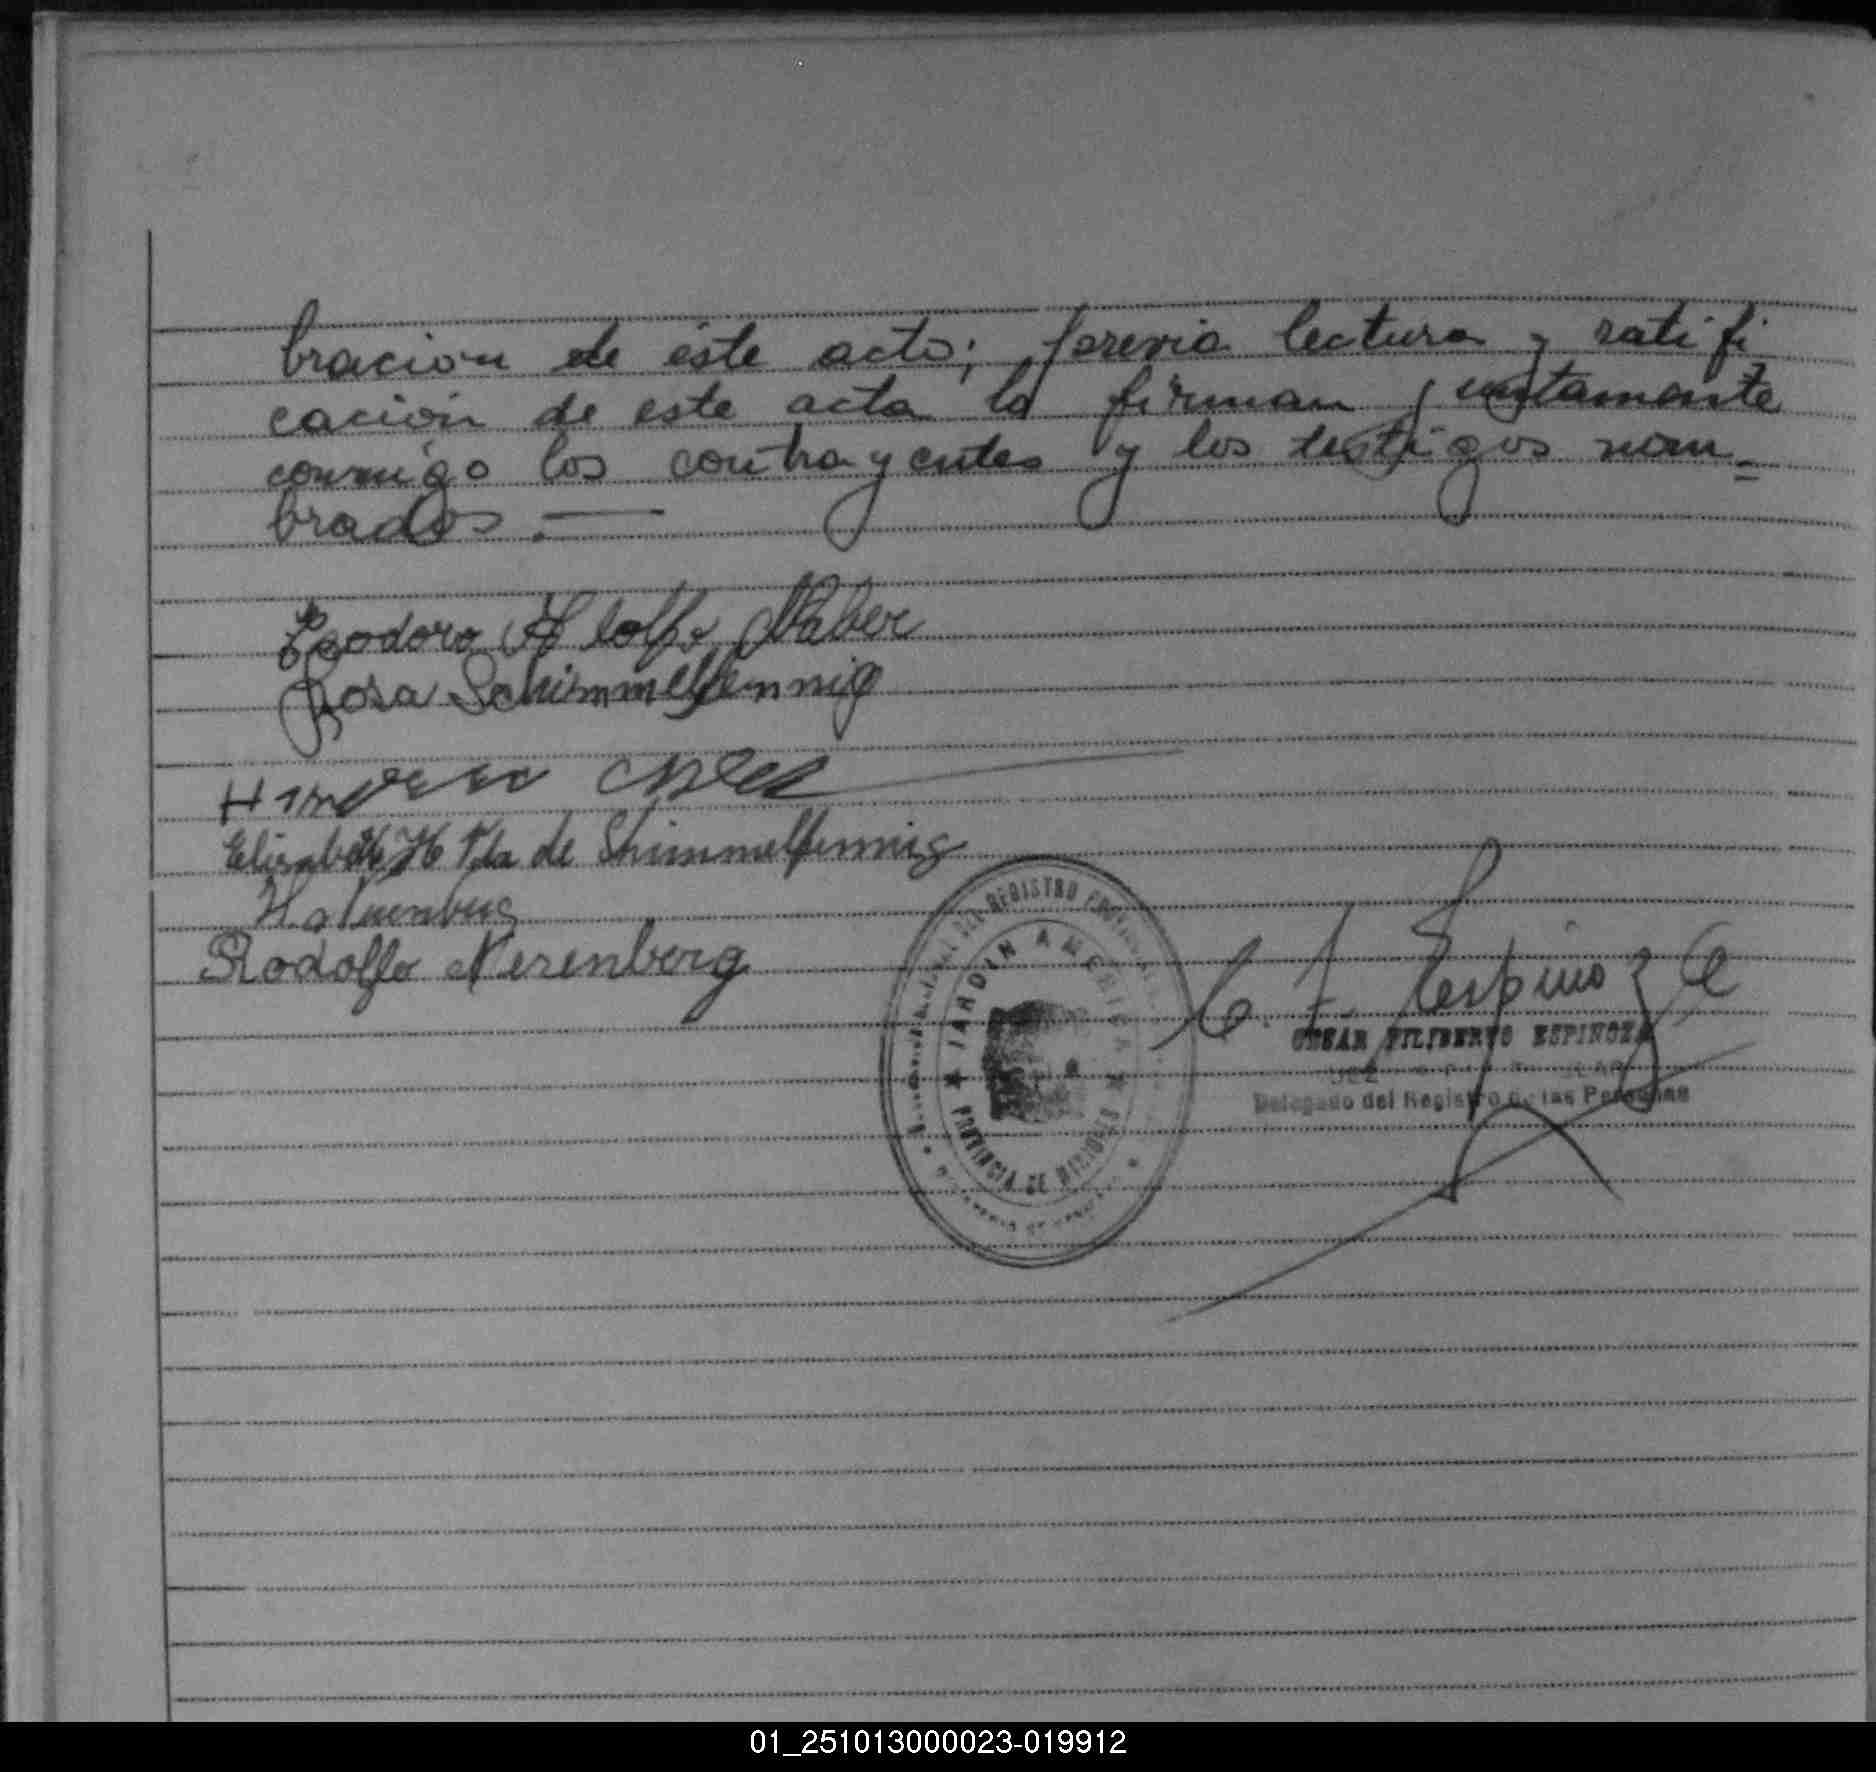 bracion de éste acto; previa lectura y ratifi
cación de este acta la firman juntamente
conmigo los contrayentes y los testigos nom_
brados. —
Teodoro Adolfo Naber
Rosa Schimmelfennig
Elisabeth H Vda de Shimmelfennig
Rodolfo Nerenberg
C. F. Espinoza
DEL REGISTRO PROVINCIAL
★ JARDIN AMERICA ★
PROVINCIA DE MISIONES
CESAR FILIBERTO ESPINOZA
JUEZ
Delegado del Registro de las Personas
01_251013000023-019912